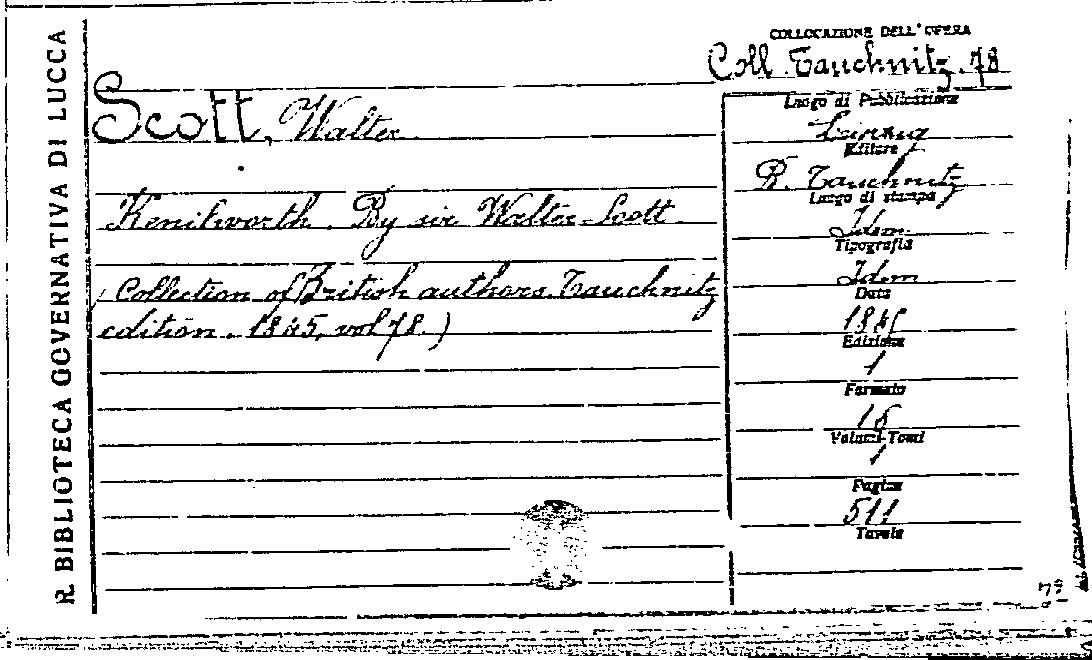 R. BIBLIOTECA GOVERNATIVA DI LUCCA
COLLOCAZIONE DELL'OPERA
Coll. Tauchnitz. 78
Scott, Walter
Kenilworth. By sir Walter Scott
(Collection of British authors. Tauchnitz
edition. 1845, vol 78.)
Luogo di Pubblicazione
Leipzig
Editore
B. Tauchnitz
Luogo di stampa
Idem
Tipografia
Idem
Data
1845
Edizione
1
Formato
16
Volumi-Tomi
1
Pagine
511
Tavole